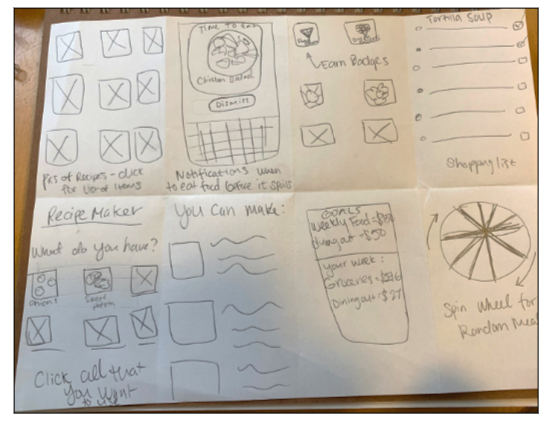 Pics of Recipes - click
for list of items
TIME TO EAT
Chicken Salad
Dismiss
Notifications when
to eat food before it spoils
Earn Badges
Tortilla Soup
Shopping list
Recipe Maker
What do you have?
onions
Click all that
you want
to use
You Can make:
GOALS
Weekly Food =
Dining out = $50
your week:
Groceries =
Dining out = $27
Spin Wheel for
Random Meal